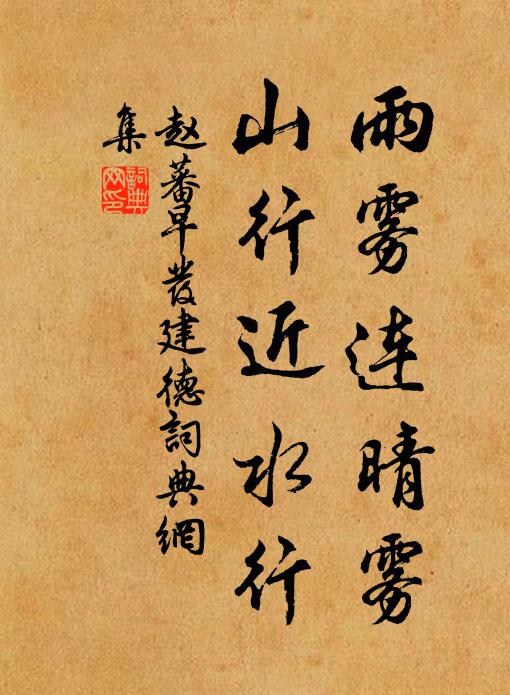 雨雾连晴雾
山行近水行
赵蕃早发建德詞典網
集
詞典网印